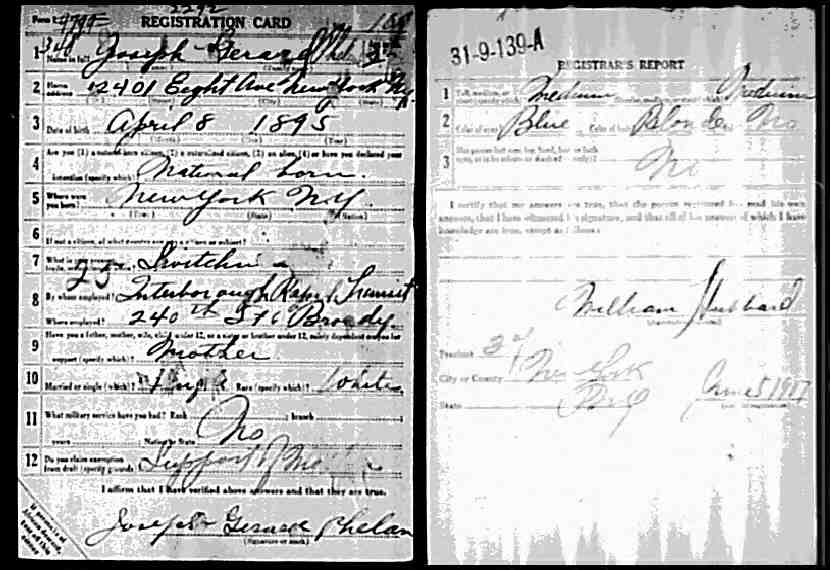 Form 1
REGISTRATION CARD
1 Name in full Joseph Gerard
2 Home address 2401 Eight Ave New York N.Y.
3 Date of birth April 8 1895
(Month) (Day) (Year)
4 Are you (1) a natural-born citizen, (2) a naturalized citizen, (3) an alien, (4) or have you declared your
intention (specify which)? Natural born.
5 Where were you born? New York N.Y.
(Town) (State) (Nation)
6 If not a citizen, of what country are you a citizen or subject?
7 What is your
8 By whom employed? Interborough Rapid Transit
Where employed? 240th St & Broadway.
9 Have you a father, mother, wife, child under 12, or a sister or brother under 12, solely dependent on you for
support (specify which)? Mother
10 Married or single (which)? Single Race (specify which)? White
11 What military service have you had? Rank ; branch
years ; Nation or State No
12 Do you claim exemption from draft (specify grounds)? Support of
I affirm that I have verified above answers and that they are true.
Joseph Gerard Phelan
(Signature or mark)
31-9-139-A
REGISTRAR'S REPORT
1 Tall, medium, or short (specify which)? Medium Slender, medium, or stout (which)? Medium
2 Color of eyes? Blue Color of hair? Blonde Bald? No
3 Has person lost arm, leg, hand, foot, or both
eyes, or is he otherwise disabled (specify)? No
I certify that my answers are true, that the person registered has read his own
answers, that I have witnessed his signature, and that all of his answers of which I have
knowledge are true, except as follows:
William Hubbard
Precinct
City or County New York
State N.Y. June 5 1917